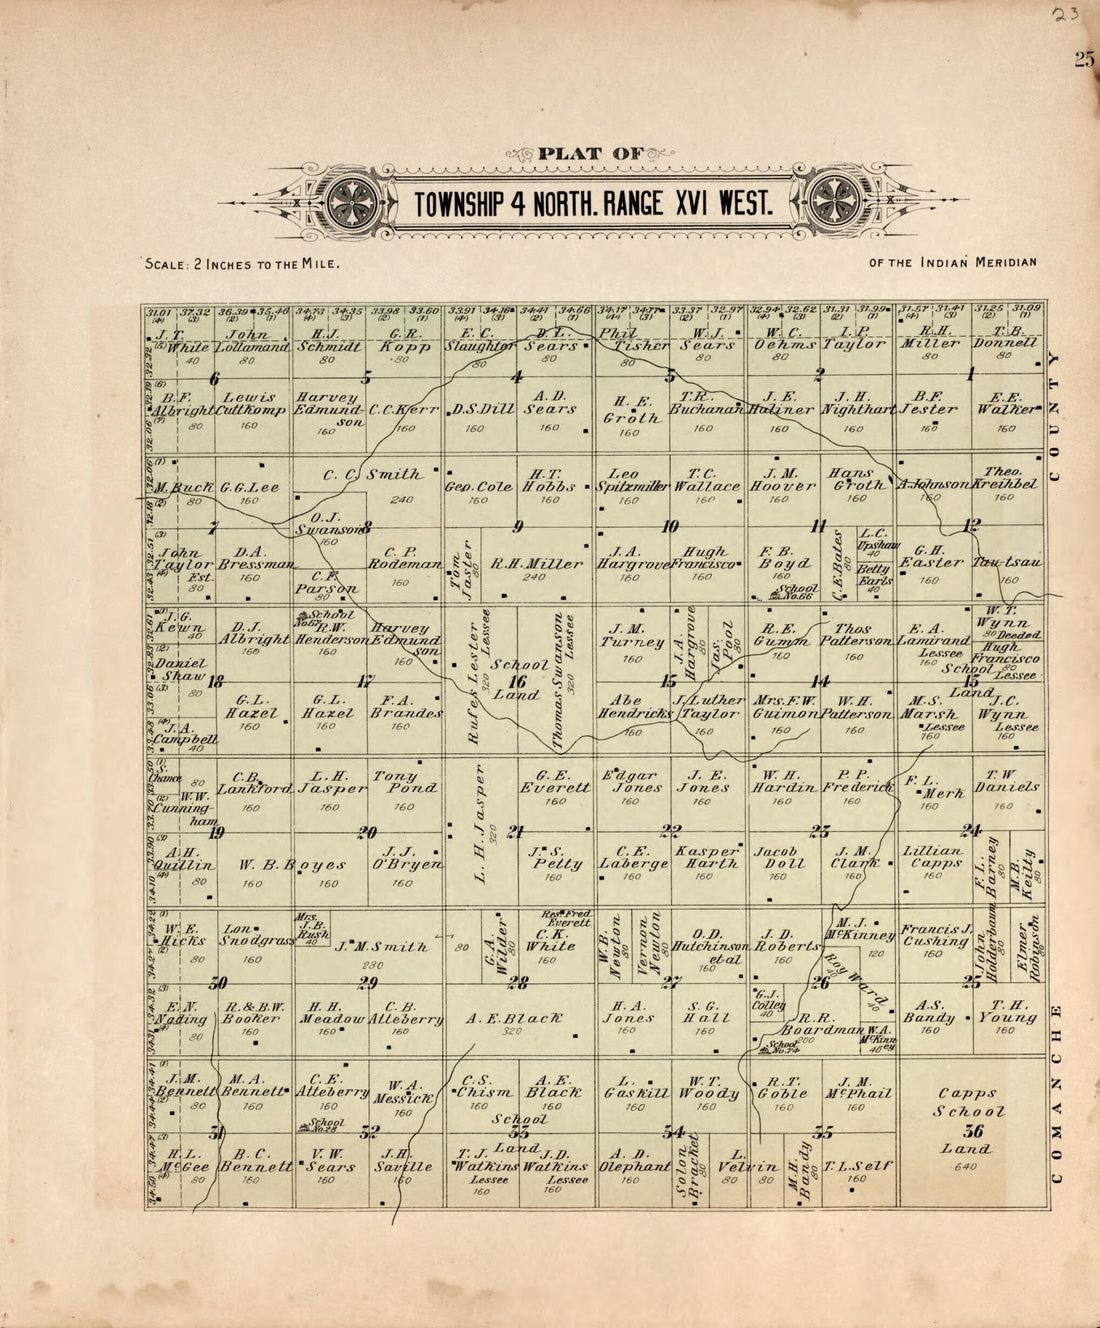 23
25
PLAT OF
TOWNSHIP 4 NORTH. RANGE XVI WEST.
SCALE: 2 INCHES TO THE MILE.
OF THE INDIAN MERIDIAN
31.01 37.32 36.39 35.46 34.73 34.35 33.98 33.60 33.91 34.16 34.41 34.66 34.17 33.37 32.97 32.94 32.62 31.31 31.99 31.57 31.41 31.25 31.09
J. T. White 40
John Lollamand 80
H.J. Schmidt 80
G.R. Kopp 80
E. C. Slaughter 80
D. L. Sears 80
Phil Tisher 80
W. J. Sears 80
W. C. Oehms 80
I. P. Taylor 80
R.H. Miller 80
T. B. Donnell 80
6 5 4 3 2 1
B.F. Albright 80
Lewis Cuttkomp 160
Harvey Edmundson 160
C.C. Kerr 160
D.S. Dill 160
A. D. Sears 160
H. E. Groth 160
T.R. Buchanan 160
J. E. Haliner 160
J. H. Nighthart 160
B.F. Jester 160
E. E. Walker 160
M. Buck 80
G.G. Lee 160
C. C. Smith 240
Geo. Cole 160
H.T. Hobbs 160
Leo Spitzmiller 160
T.C. Wallace 160
J. M. Hoover 160
Hans Groth 160
A. Johnson 160
Theo. Kreihbel 160
O.J. Swanson 160
7 8 9 10 11 12
John Taylor Est. 80
D.A. Bressman 160
C.F. Parson 80
C. P. Rodeman 160
Tom Jaster 80
R.H. Miller 240
J. A. Hargrove 160
Hugh Francisco 160
F. B. Boyd 160
School No. 66
C.E. Bates 80
L.C. Upshaw 40
Betty Earls 40
G.H. Easter 160
Tautsau 160
J.G. Kewn 40
Daniel Shaw 80
D.J. Albright 160
School No. 67
R.W. Henderson 160
Harvey Edmundson 160
Rufes Lester Lessee 320
School Land
Thomas Swanson Lessee 320
J. M. Turney 160
J. A. Hargrove 80
Jas. Pool 80
R. E. Gumm 160
Thos Patterson 160
E. A. Lamirand Lessee 160
W. T. Wynn 80 Deeded
Hugh Francisco 80 Lessee
School Land
18 17 16 15 14 13
J. A. Campbell 40
G.L. Hazel 160
G.L. Hazel 160
F. A. Brandes 160
Abe Hendricks 160
J. Luther Taylor 160
Mrs. F.W. Guimon 160
W. H. Patterson 160
M. S. Marsh Lessee 160
J.C. Wynn Lessee 160
S. Chance 80
W.W. Cunningham
C.B. Lankford 160
L.H. Jasper 160
Tony Pond 160
L. H. Jasper 320
G. E. Everett 160
Edgar Jones 160
J. E. Jones 160
W. H. Hardin 160
P. P. Frederick 160
F. L. Merk 160
T. W Daniels 160
19 20 21 22 23 24
A.H. Quillin 80
W. B. Boyes 160 160
J. J. O'Bryen 160
J. S. Petty 160
C. E. Laberge 160
Kasper Harth 160
Jacob Doll 160
J. M. Clark 160
Lillian Capps 160
F. L. Barney 80
M.B. Keilty 80
W. E. Hicks 80
Lon Snodgrass 160
Mrs. J.B. Rush 40
J. M. Smith 280
80
G.A. Wilder 80
Res. Fred. Everett
C. K. White 160
W.B. Newton 80
Vernon Newton 80
O.D. Hutchinson et al 160
J. D. Roberts 160
M. J. McKinney 120
Roy Ward 40
Francis J. Cushing 160
John Holderbaum 80
Elmer Robinson 80
30 29 28 27 26 25
E. N. Nading 80
R. & B.W. Booker 160
H. H. Meadow 160
C. B. Atteberry 160
A. E. Black 320
H. A. Jones 160
S. G. Hall 160
G.J. Colley 40
R. R. Boardman 200
School No. 74
W.A. McKinney 40
A.S. Bandy 160
T. H. Young 160
J. M. Bennett 80
M.A. Bennett 160
C. E. Atteberry 160
School No. 28
W. A. Messick 160
C.S. Chism 160
A. E. Black 160
School Land
L. Gaskill 160
W. T. Woody 160
R. T. Goble 160
J. M. McPhail 160
Capps School Land 640
31 32 33 34 35 36
H.L. McGee 80
B. C. Bennett 160
V. W. Sears 160
J.H. Saville 160
T. J. Watkins Lessee 160
J.D. Watkins Lessee 160
A. D. Olephant 160
Solon Bracket 80
L. Velvin 80 80
M.H. Bandy 80
T. L. Self 160
COMANCHE COUNTY